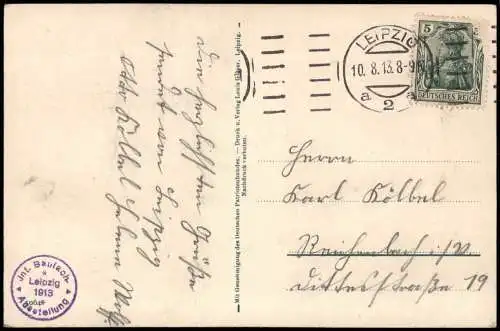 Die herzlichsten Grüße
sendet von Leipzig
Otto Kölbel Helene
Mit Genehmigung des Deutschen Patriotenbundes. — Druck u. Verlag Louis Glaser, Leipzig.
Nachdruck verboten.
LEIPZIG
10. 8. 13. 8-9
a 2
5
DEUTSCHES REICH
Herrn
Karl Kölbel
Reichenbach i/V.
Dittesstraße 19
Int. Baufach-
Leipzig
1913
Ausstellung